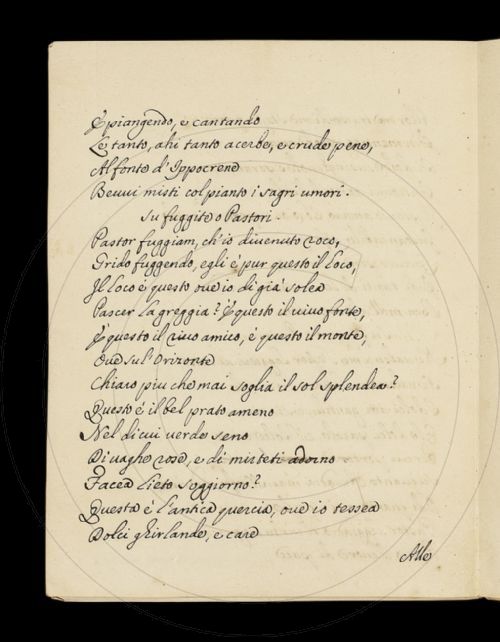 E piangendo, e cantando
Le tanto, ahi tanto acerbe, e crude pene,
Al fonte d'Ippocrene
Bevvi misti col pianto i sagri umori.
Su fuggite o Pastori.
Pastor fuggiam, ch'io divenuto roco,
Grido fuggendo, egli è pur questo il Loco,
Il Loco è questo ove io di già solea
Pascer La greggia? È questo il vivo fonte,
È questo il rivo amico, è questo il monte,
Ove sul' Orizonte
Chiaro piu che mai soglia il sol splendea?
Questo è il bel prato ameno
Nel di cui verde seno
Di vaghe rose, e di misteti adorno
Facea Lieto soggiorno?
Questa è l'antica quercia, ove io tessea
Dolci ghirlande, e care
Alle